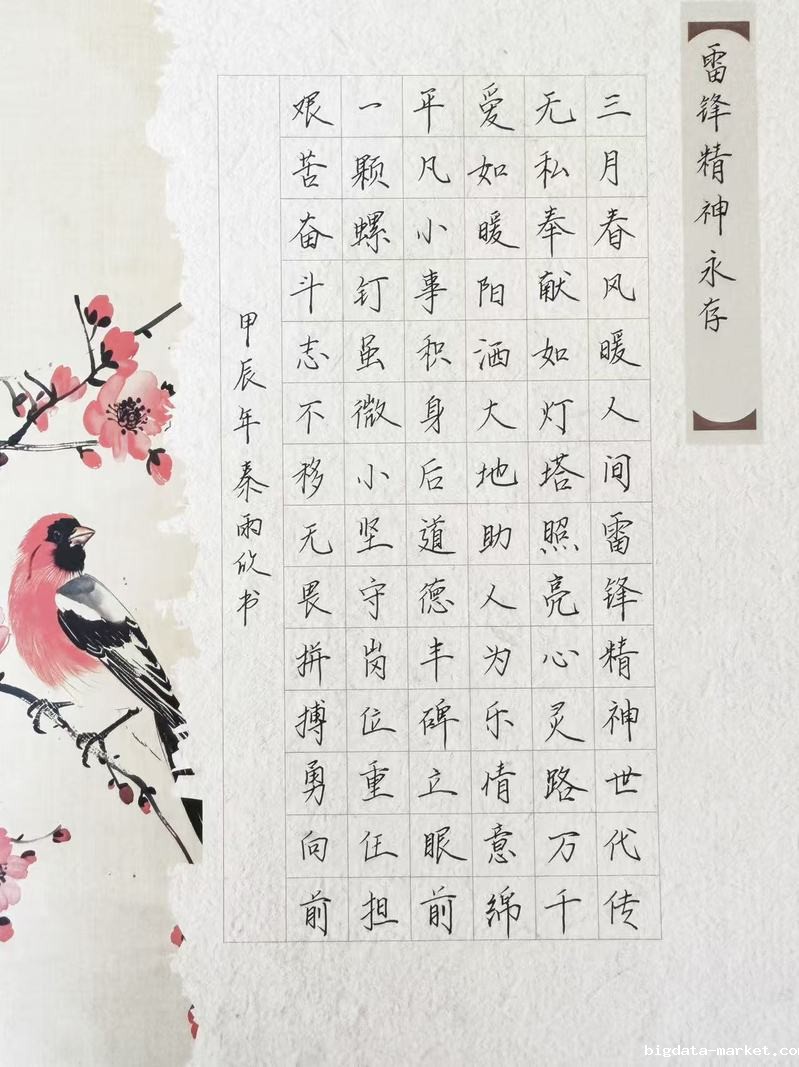 雷锋精神永存
三月春风暖人间雷锋精神世代传
无私奉献如灯塔照亮心灵路万千
爱如暖阳洒大地助人为乐情意绵
平凡小事积身后道德丰碑立眼前
一颗螺钉虽微小坚守岗位重任担
艰苦奋斗志不移无畏拼搏勇向前
甲辰年秦雨欣书
bigdata-market.com